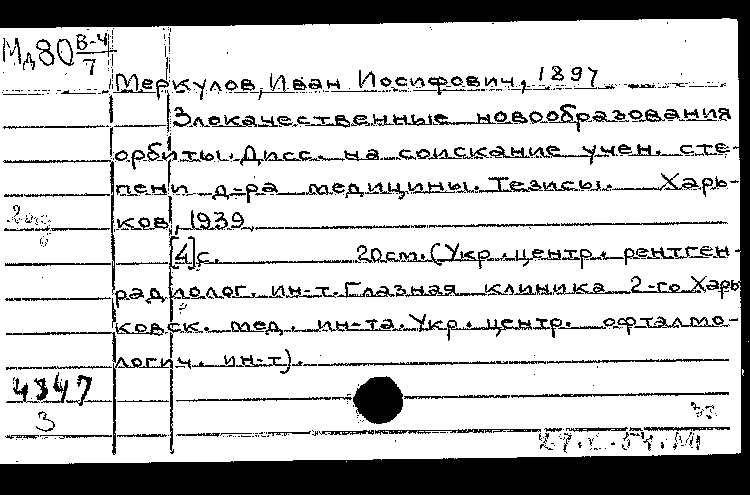 Мд80 В-4/7
Меркулов, Иван Иосифович, 1897
Злокачественные новообразования
орбиты. Дисс. на соискание учен. сте-
пени д-ра медицины. Тезисы. Харь-
ков, 1939
[4]с. 20см. (Укр. центр. рентген-
радиолог. ин-т. Глазная клиника 2-го Харь
ковск. мед. ин-та. Укр. центр. офталмо-
логич. ин-т).
4347
3